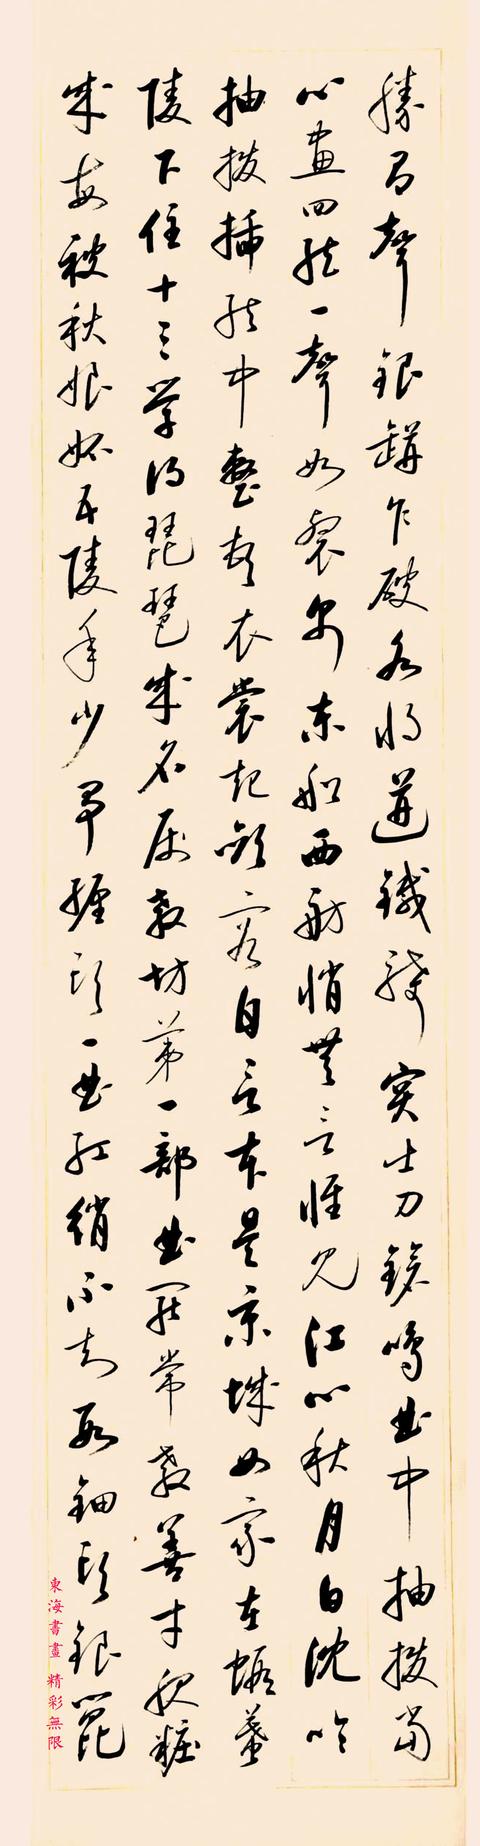 勝有聲銀缾乍破水將迸鐵騎突出刀鎗鳴曲中抽撥當
心畫四絃一聲如裂帛東船西舫悄無言惟見江心秋月白沈吟
抽撥插絃中整頓衣裳起斂容自言本是京城女家在蝦蟇
陵下住十三学得琵琶成名屬教坊第一部曲罷常教善才伏粧
成每被秋娘妬五陵年少爭纏頭一曲紅綃不知數鈿頭銀篦
東海書畫 精彩無限